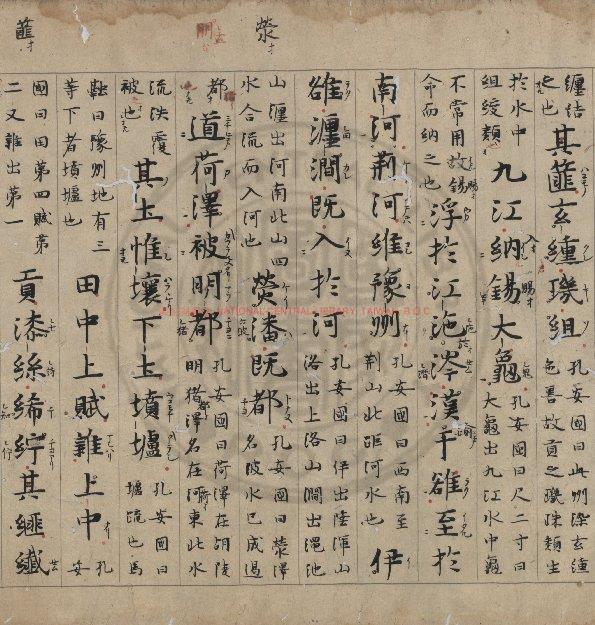 熒
篚
纏結
之也
其篚玄纁璣組
孔安國曰此州染玄纁
色善故貢之璣珠類生
於水中
組綬類
九江納錫大龜
孔安國曰尺二寸曰
大龜出九江水中龜
不常用故錫
命而納之也
浮於江沱涔漢于雒至於
南河荊河維豫州
孔安國曰西南至
荊山北距河水也
伊
雒瀍澗既入於河
孔安國曰伊出陸渾山
洛出上洛山澗出澠池
山瀍出河南北山四
水合流而入河也
熒潘既都
孔安國曰熒澤
名波水已成遏
都
道荷澤被明都
孔安國曰荷澤在胡陵
明豬澤名在河東北水
流泆覆
被也
其土惟壤下土墳壚
孔安國曰
壚流也馬
融曰豫州地有三
等下者墳壚也
田中上賦雜上中
孔
安
國曰田第四賦第
二又雜出第一
貢漆絲絺紵其篚纖
NATIONAL CENTRAL LIBRARY, TAIWAN, R.O.C